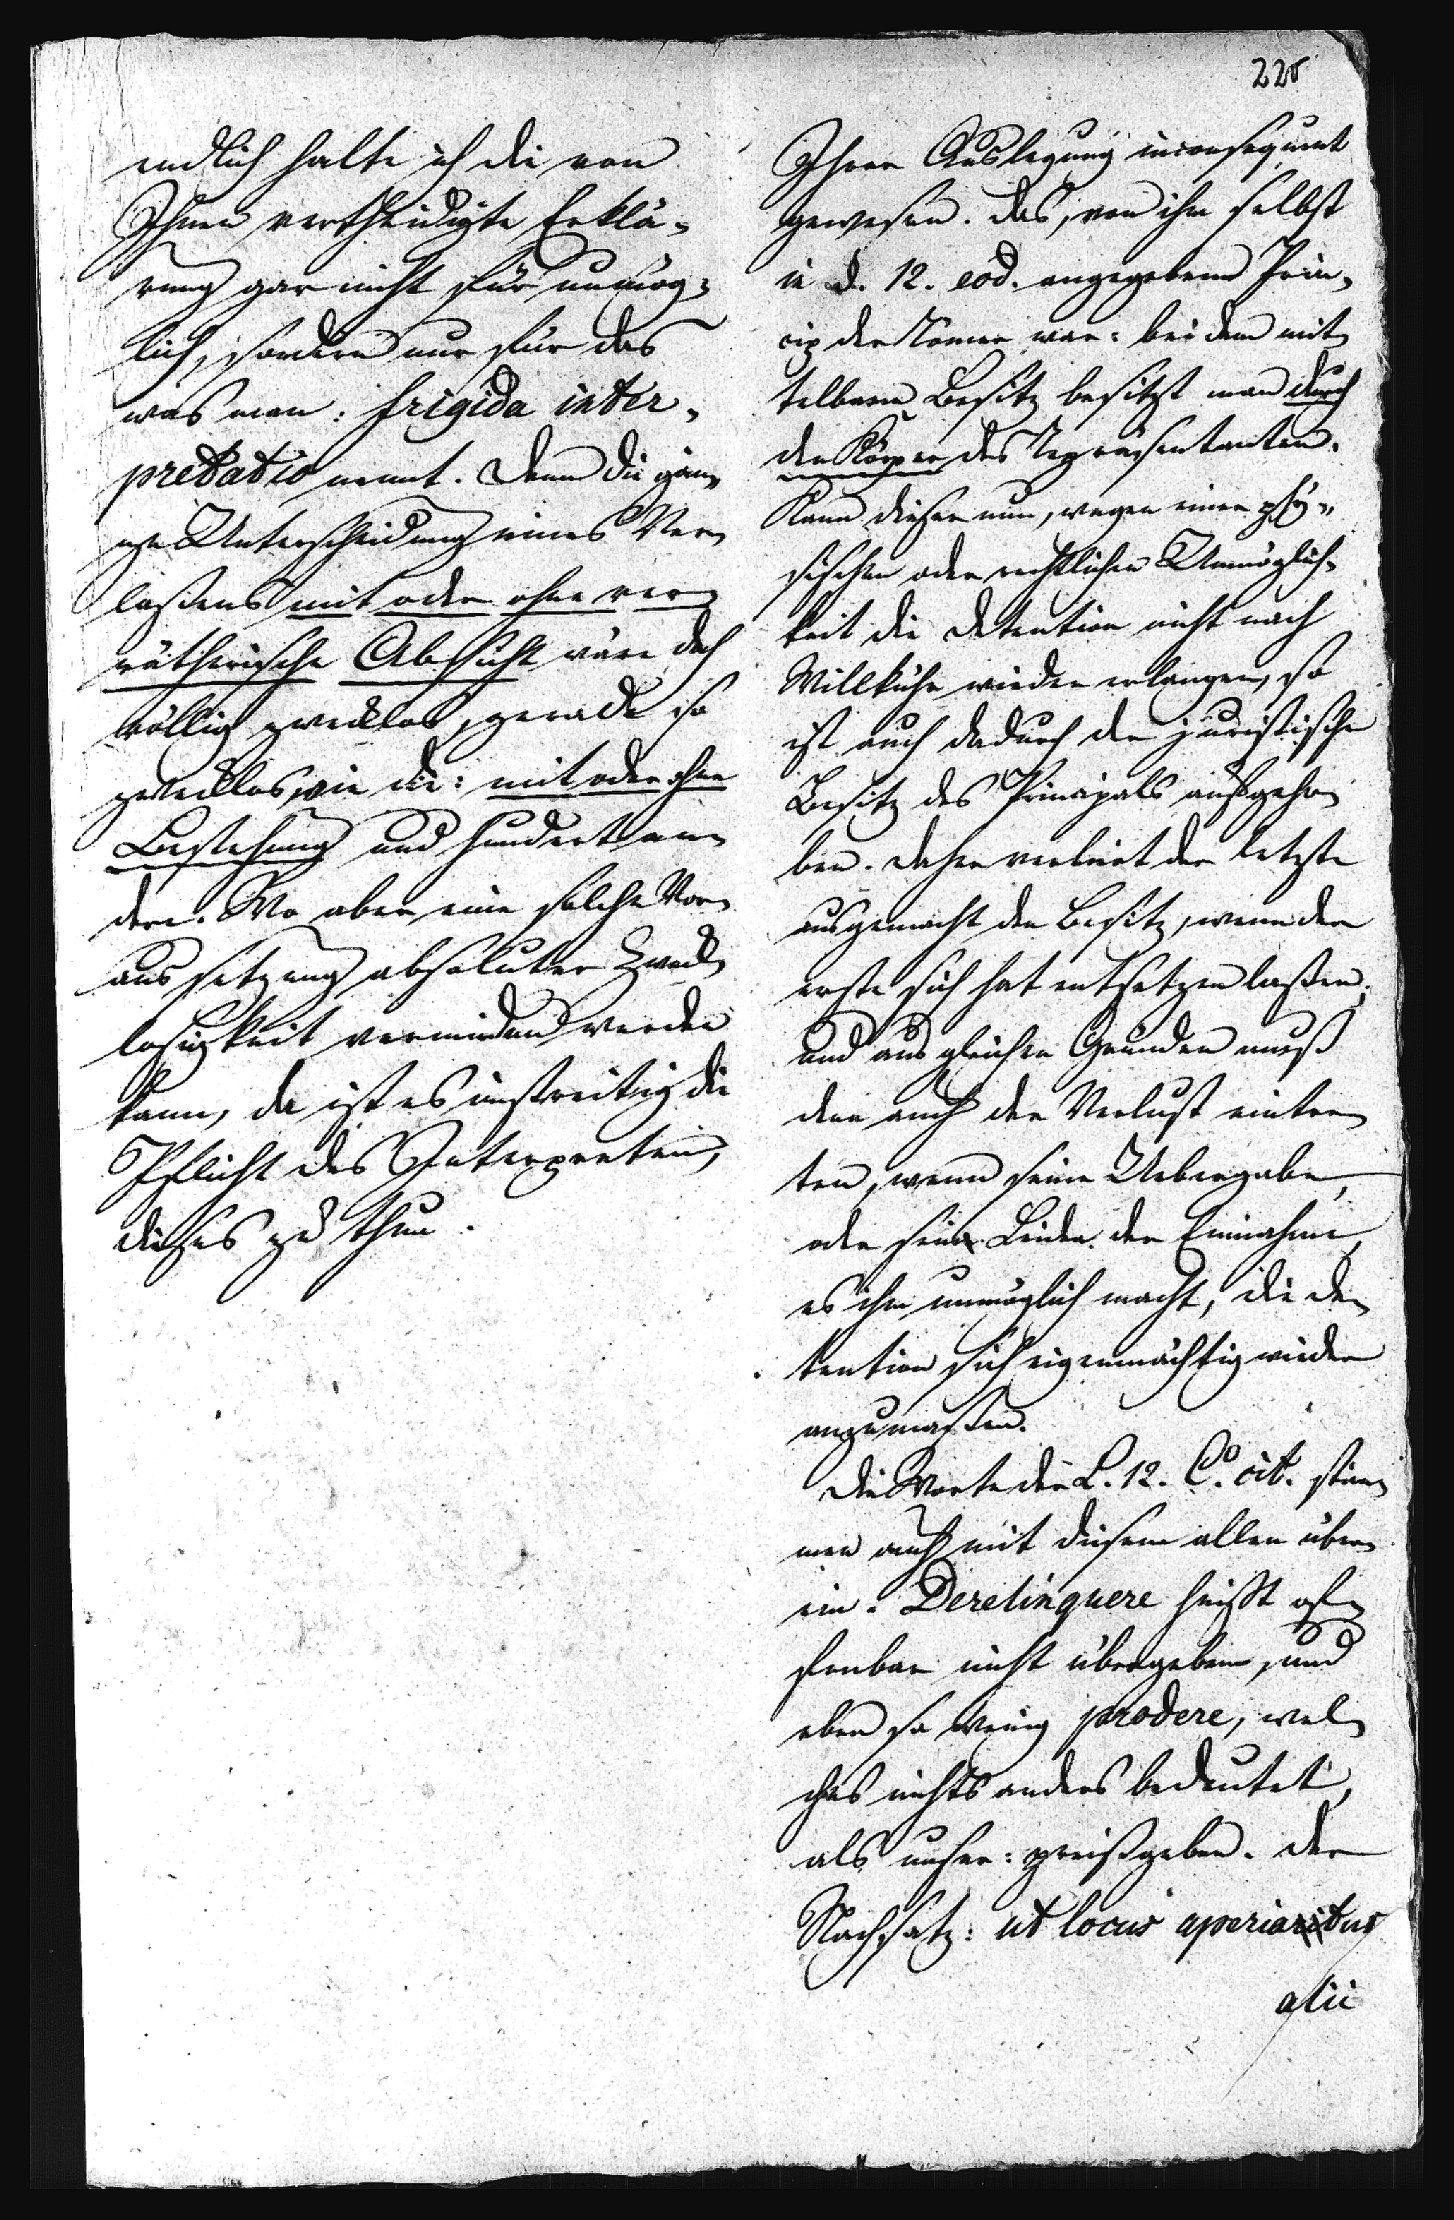 225
endlich halte ich die von
Ihnen vertheidigte Erklä-
rung gar nicht für unmög-
lich, sondern nur für das
was man: frigida inter-
pretatio nennt. Denn die gan-
ze Unterscheidung eines Ver-
laßens mit oder ohne ver-
rätherische Absicht wäre doch
völlig zwecklos, gerade so
zwecklos, wie die: mit oder ohne
Bestechung und hundert an-
dere. Wo aber eine solche Vor-
aussetzung absoluter Zweck-
losigkeit vermieden werden
kann, da ist es unstreitig die
Pflicht des Interpreten,
dieses zu thun.
Ihrer Auslegung inconsequent
gewesen. Das, von ihm selbst
in d. 12. eod. angegebene Prin-
cip der Römer war: bei dem mit-
telbaren Besitz besitzt man durch
den Körper des Repräsentanten.
Kann dieser nun, wegen einer phy-
sischen oder rechtlichen Unmöglich-
keit die Detention nicht nach
Willkühr wieder erlangen, so
ist auch dadurch der juristische
Besitz des Principals aufgeho-
ben. Daher verliert der letzte
ausgemacht den Besitz, wenn der
erste sich hat entsetzen laßen;
und aus gleichen Gründen muß
denn auch der Verlust eintre-
ten, wenn seine Uebergabe,
oder sein Leiden der Einnahme,
es ihm unmöglich macht, die De-
tention sich eigenmächtig wieder
anzumaßen.
Die Worte der L. 12. C. cit. stim-
men auch mit diesem allen über-
ein. Derelinquere heißt of-
fenbar nicht übergeben, und
eben so wenig prodere, wel-
ches nichts anders bedeutet,
als unser: preißgeben. Der
Nachsatz: ut locus aperiatur
alii